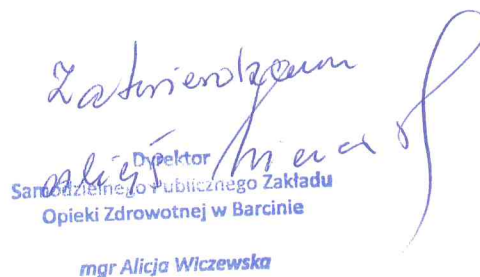 Zatwierdzam
Dyrektor
Samodzielnego Publicznego Zakładu
Opieki Zdrowotnej w Barcinie
mgr Alicja Wiczewska